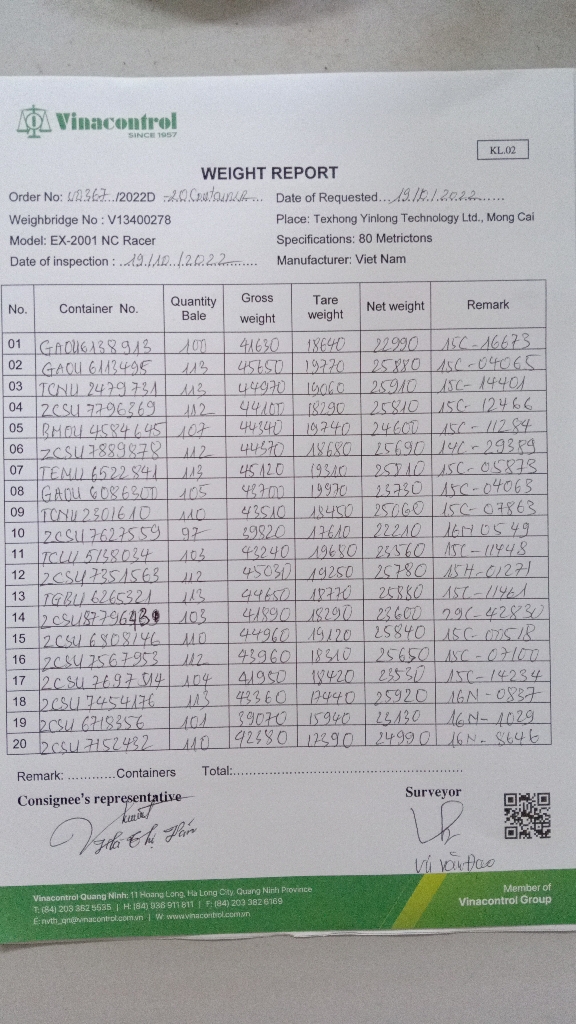 Vinacontrol
SINCE 1957
KL.02
WEIGHT REPORT
Order No: /2022D - 20 Date of Requested... 19/10/2022
Weighbridge No : V13400278 Place: Texhong Yinlong Technology Ltd., Mong Cai
Model: EX-2001 NC Racer Specifications: 80 Metrictons
Date of inspection : 19/10/2022 Manufacturer: Viet Nam
No. Container No. Quantity Bale Gross weight Tare weight Net weight Remark
01 GAOU6138913 100 41630 18640 22990 15C-16673
02 GAOU 6113495 113 45650 19770 25880 15C-04065
03 TCNU 2479731 113 44970 19060 25910 15C-14401
04 ZCSU 7796369 112 44100 18290 25810 15C-12466
05 BMOU 4584645 107 44340 19740 24600 15C-11284
06 ZCSU 7889878 112 44370 18680 25690 14C-29389
07 TEMU 6522841 113 45120 19310 25810 15C-05873
08 GAOU 6086300 105 43700 19970 23730 15C-04063
09 TCNU 2301610 110 43510 18450 25060 15C-07863
10 ZCSU 7627559 97 39820 17610 22210 16N 0549
11 TCLU 5138034 103 43240 19680 23560 15C-11448
12 ZCSU 7351563 112 45030 19250 25780 15H-01271
13 TGBU 6265321 113 44650 18770 25880 15C-11461
14 103 41890 18290 23600 29C-42830
15 ZCSU 6808146 110 44960 19120 25840 15C-00518
16 ZCSU 7567953 112 43960 18310 25650 15C-07100
17 ZCSU 7697514 104 41950 18420 23530 15C-14234
18 ZCSU 7454176 113 43360 17440 25920 16N-0837
19 ZCSU 6718356 101 39070 15940 23130 16N-1029
20 ZCSU 7152432 110 42380 17390 24990 16N-8646
Remark: ............Containers Total:
Consignee's representative Surveyor
Vũ Văn Đạo
Vinacontrol Quang Ninh: 11 Hoang Long, Ha Long City, Quang Ninh Province
T: (84) 203 382 5535 | H: (84) 936 911 811 | F: (84) 203 382 6169
E: nvth_qn@vinacontrol.com.vn | W: www.vinacontrol.com.vn
Member of
Vinacontrol Group